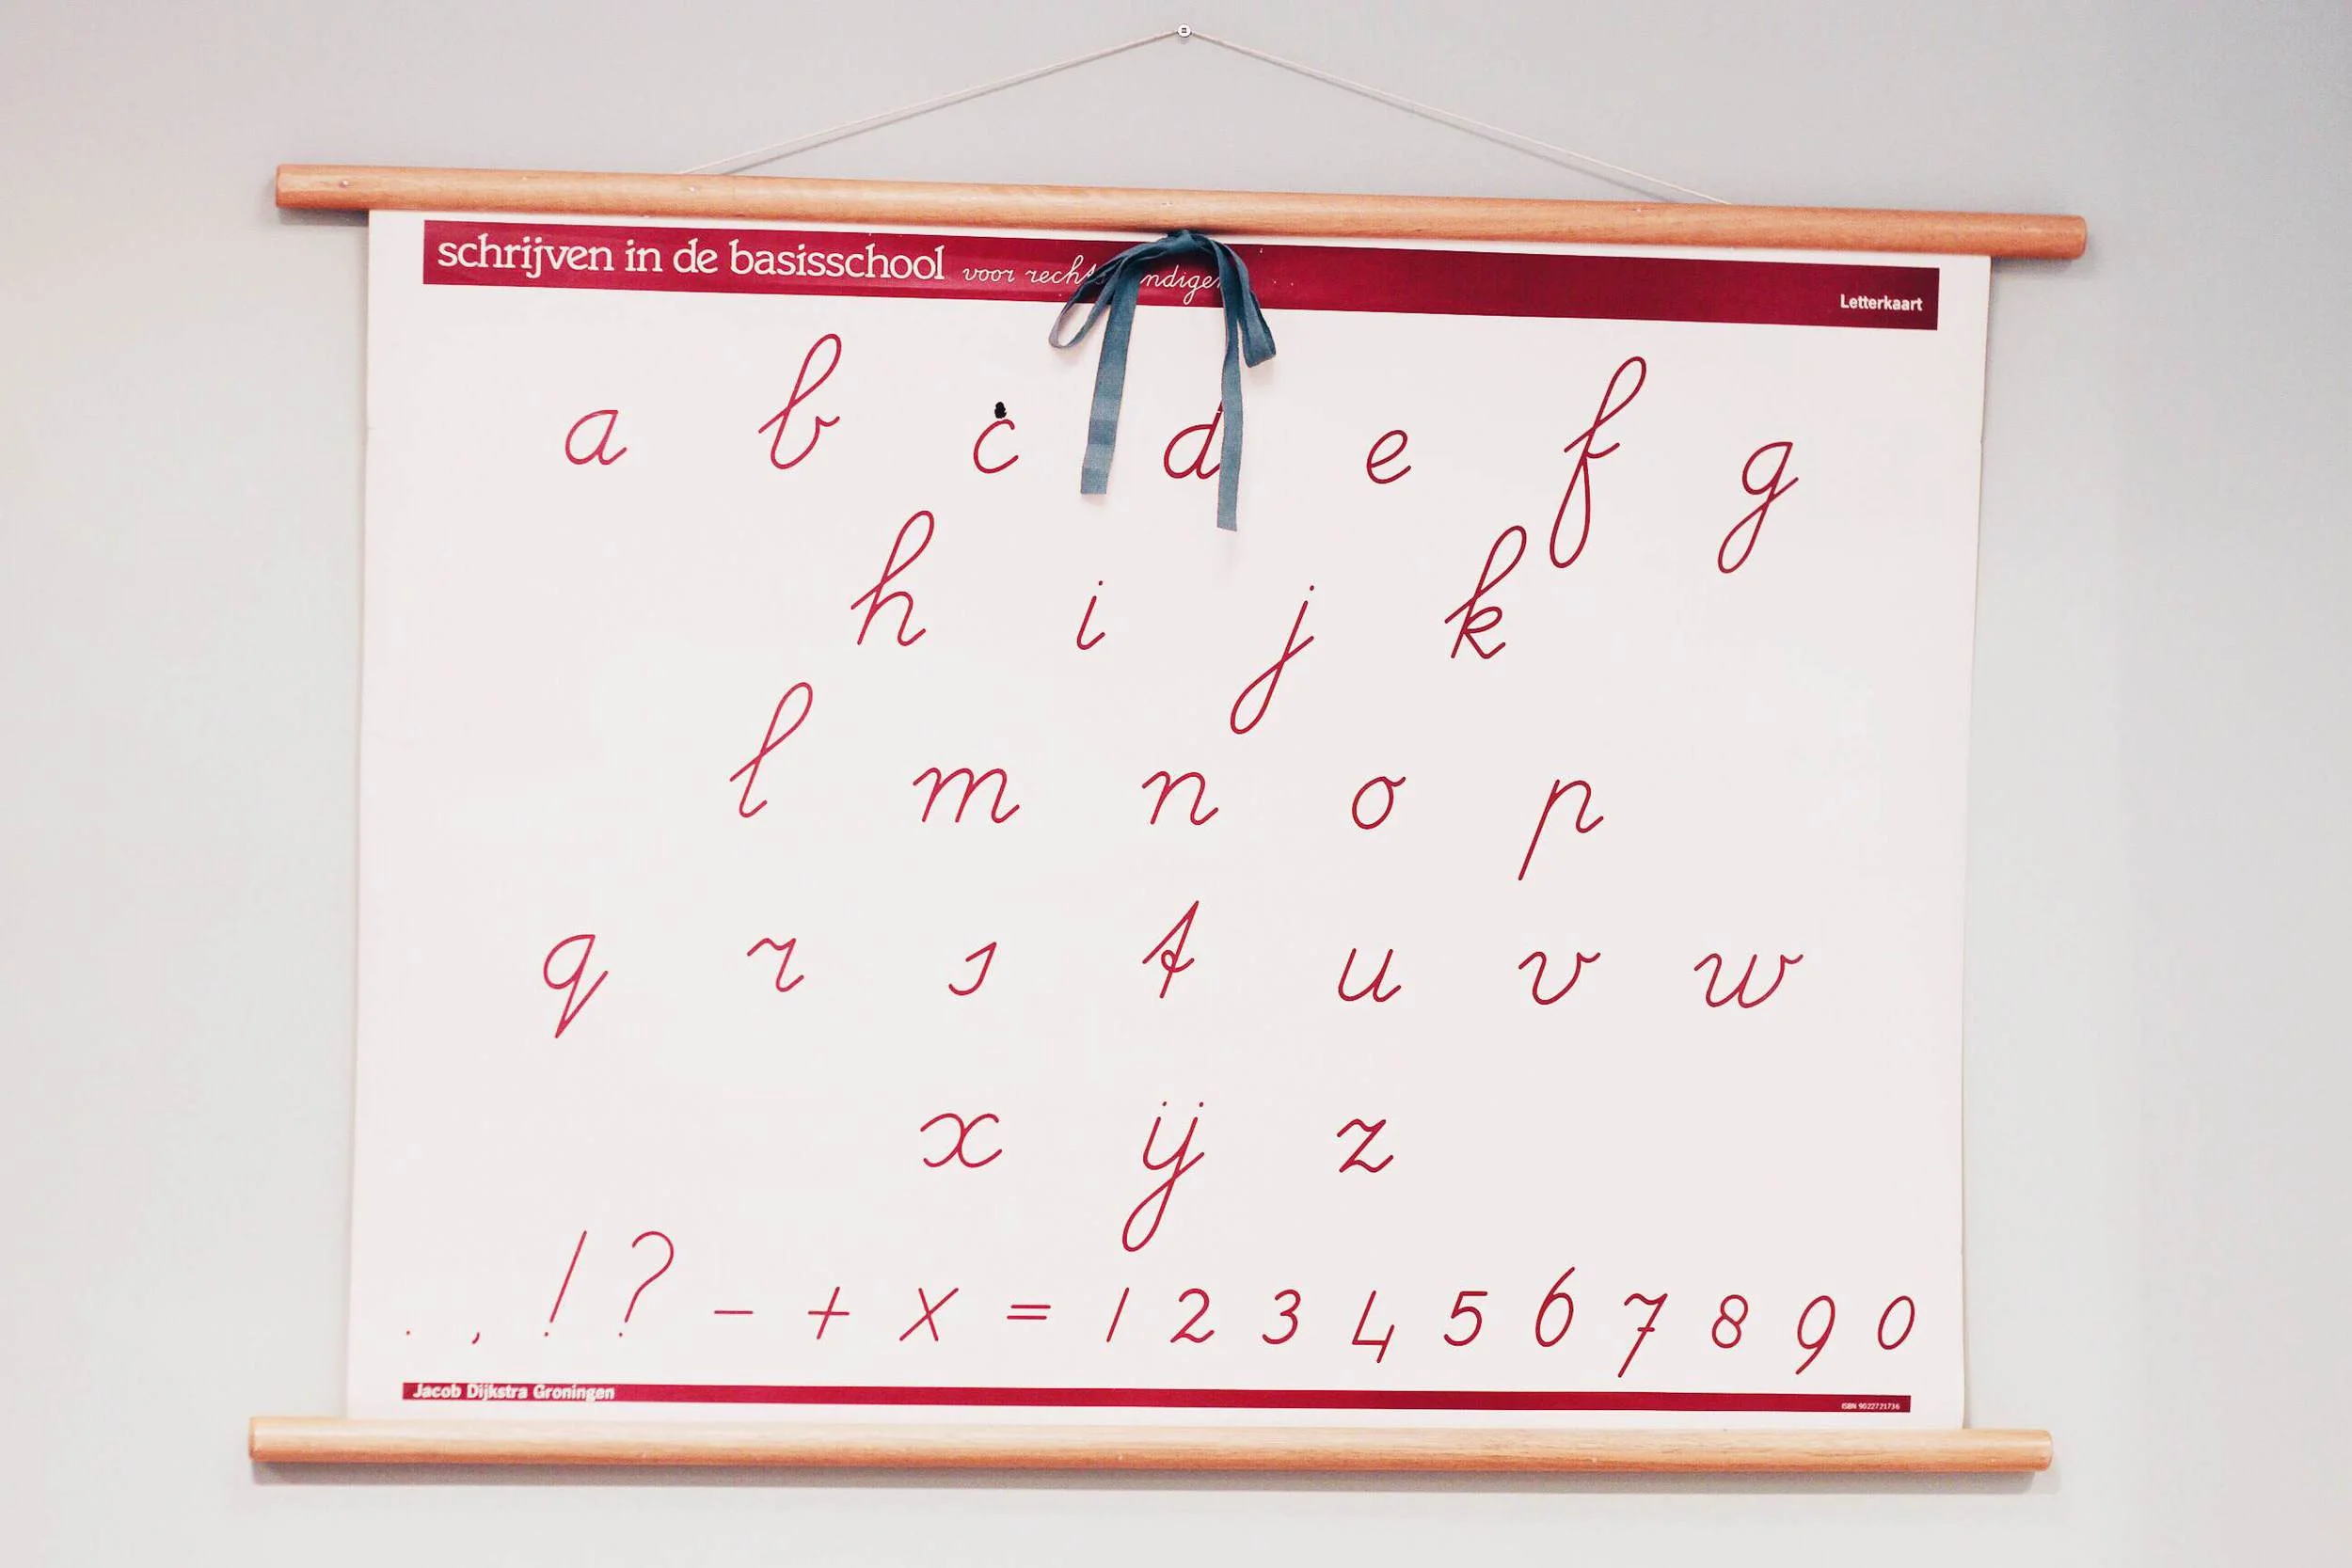 schrijven in de basisschool voor
Letterkaart
a b c d e f g
h i j k
l m n o p
q r s t u v w
x ij z
. , ! ? − + x = 1 2 3 4 5 6 7 8 9 0
Jacob Dijkstra Groningen
ISBN 9022721736